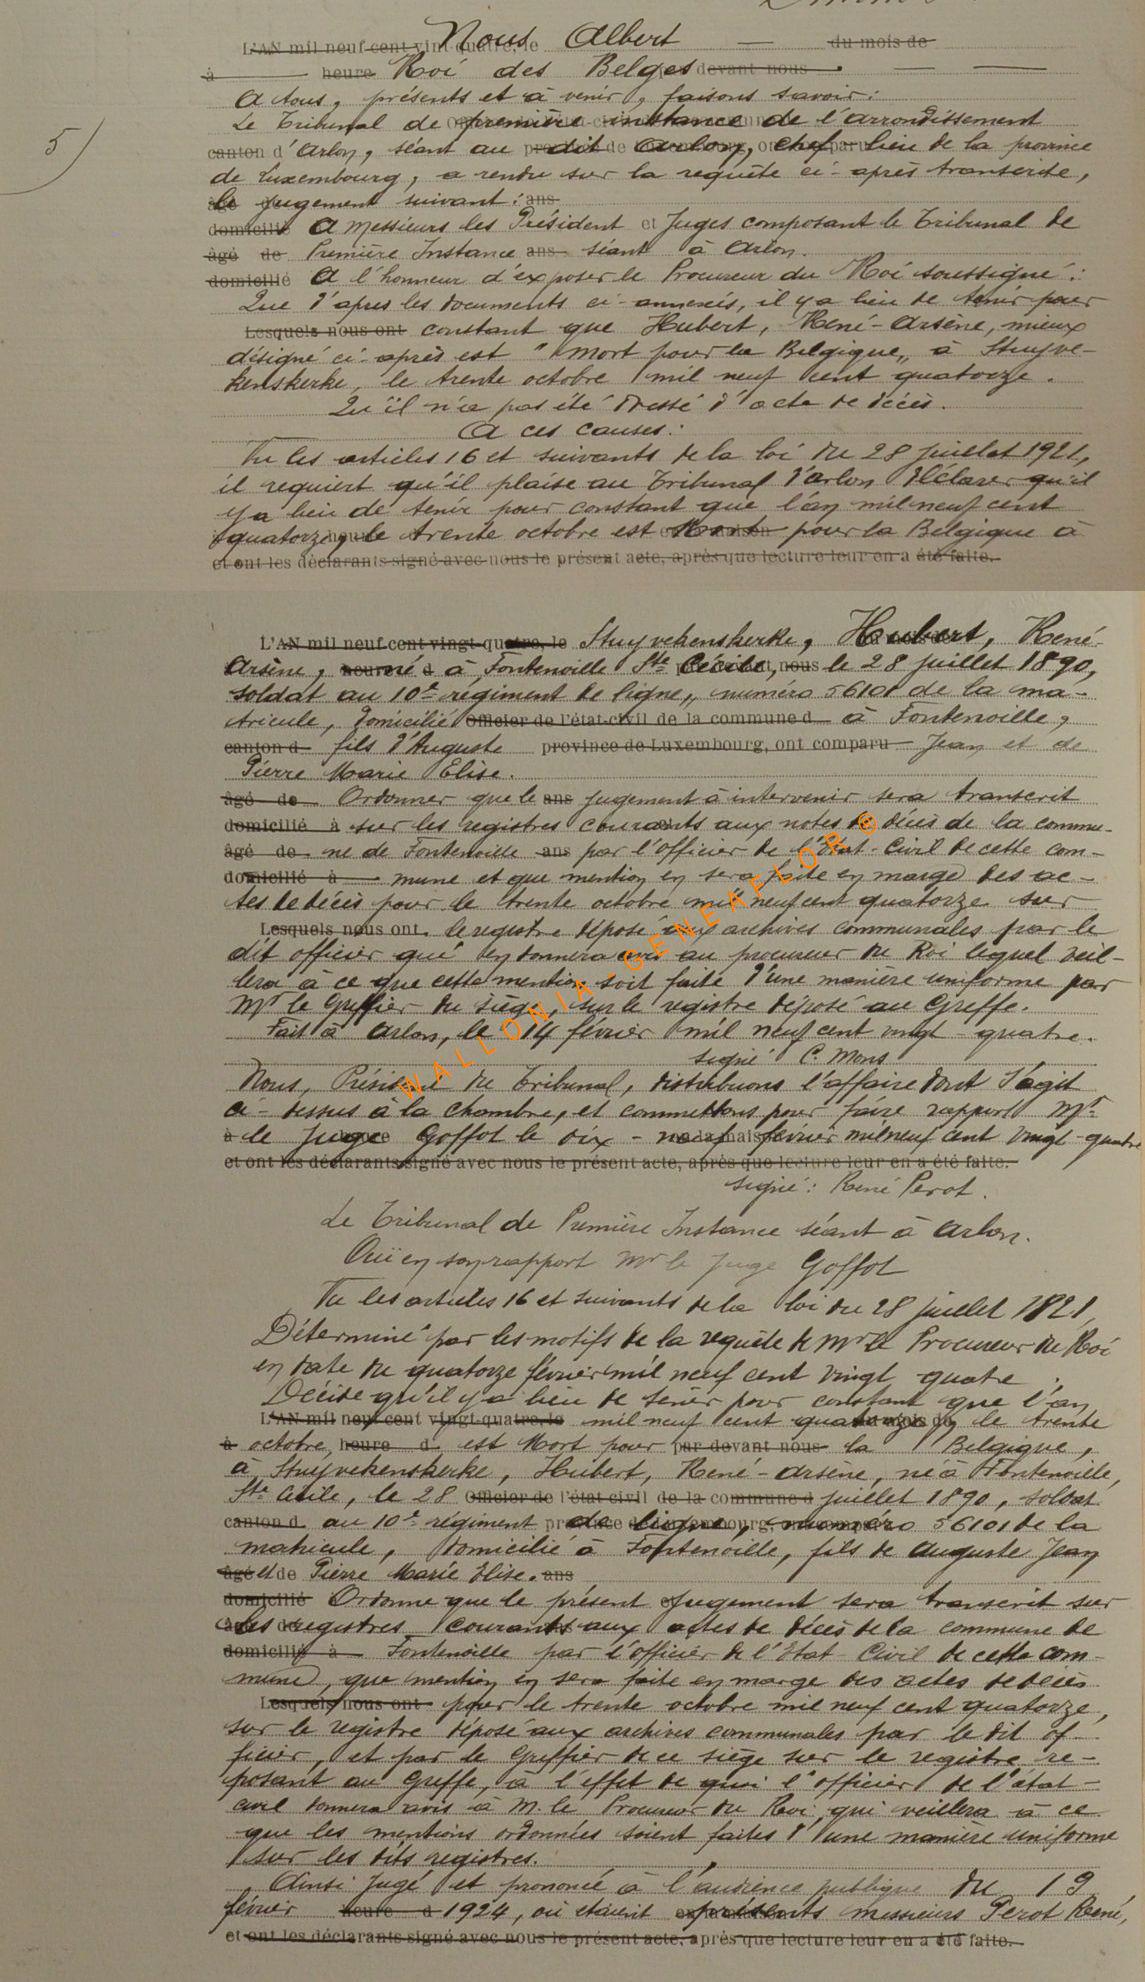 L'AN mil neuf cent vingt-quatre, le Nous Albert — du mois de
à heure Roi des Belges devant nous
A tous, présents et à venir, faisons savoir :
Le Tribunal de première instance de l'arrondissement
canton d'Arlon, séant au dit Arlon, chef lieu de la province
de Luxembourg, a rendu sur la requête ci-après transcrite,
âgé le jugement suivant : ans
domicilié A Messieurs les Président et Juges composant le Tribunal de
âgé de Première Instance ans séant à Arlon.
domicilié A l'honneur d'exposer le Procureur du Roi soussigné :
Que d'après les documents ci-annexés, il y a lieu de tenir pour
Lesquels nous ont constant que Hubert, René-Arsène, mieux
désigné ci-après est "Mort pour la Belgique" à Stuyve-
kenskerke, le trente octobre mil neuf cent quatorze.
Qu'il n'a pas été dressé d'acte de décès.
A ces causes :
Vu les articles 16 et suivants de la loi du 28 juillet 1921,
il requiert qu'il plaise au Tribunal d'Arlon déclarer qu'il
y a lieu de tenir pour constant que l'an mil neuf cent
quatorze, le trente octobre est Mort pour la Belgique à
et ont les déclarants signé avec nous le présent acte, après que lecture leur en a été faite.
L'AN mil neuf cent vingt-quatre, le Stuyvekenskerke, Hubert, René-
Arsène, né à Fontenoille Ste Cécile, nous le 28 juillet 1890,
soldat au 10e régiment de ligne, numéro 56101 de la ma-
tricule, domicilié Officier de l'état-civil de la commune d à Fontenoille,
canton d fils d'Auguste province de Luxembourg, ont comparu Jean et de
Pierre Marie Elise.
âgé de Ordonner que le ans jugement à intervenir sera transcrit
domicilié à sur les registres courants aux notes de décès de la commu-
âgé de ne de Fontenoille ans par l'officier de l'Etat-Civil de cette com-
domicilié à mune et que mention en sera faite en marge des ac-
tes de décès pour le trente octobre mil neuf cent quatorze sur
Lesquels nous ont le registre déposé aux archives communales par le
dit officier qui en donnera avis au procureur du Roi lequel veil-
lera à ce que cette mention soit faite d'une manière uniforme par
Mr le Greffier du siège, sur le registre déposé au Greffe.
Fait à Arlon, le 14 février mil neuf cent vingt-quatre.
signé C. Mons
WALLONIA-GENEAFLOR ©
Nous, Président du Tribunal, distribuons l'affaire dont s'agit
ci-dessus à la chambre, et commettons pour faire rapport Mr
à le Juge Goffot le dix-neuf février mil neuf cent vingt-quatre
et ont les déclarants signé avec nous le présent acte, après que lecture leur en a été faite.
signé : René Perot.
Le Tribunal de Première Instance séant à Arlon.
Ouï en son rapport Mr le juge Goffot
Vu les articles 16 et suivants de la loi du 28 juillet 1821,
Déterminé par les motifs de la requête de Mr le Procureur du Roi
en date du quatorze février mil neuf cent vingt quatre.
Décide qu'il y a lieu de tenir pour constant que l'an
L'AN mil neuf cent vingt-quatre, le mil neuf cent quatorze, le trente
à octobre, heure d est Mort pour par-devant nous la Belgique,
à Stuyvekenskerke, Hubert, René-Arsène, né à Fontenoille,
Ste Cécile, le 28 Officier de l'état civil de la commune d juillet 1890, soldat
canton d au 10e régiment de ligne, numéro 56101 de la
matricule, domicilié à Fontenoille, fils de Auguste Jean
âgé et de Pierre Marie Elise. ans
domicilié Ordonne que le présent jugement sera transcrit sur
les registres courants aux actes de décès de la commune de
domicilié à Fontenoille par l'officier de l'Etat-Civil de cette com-
mune, que mention en sera faite en marge des actes de décès
Lesquels nous ont pour le trente octobre mil neuf cent quatorze,
sur le registre déposé aux archives communales par le dit of-
ficier, et par le Greffier de ce siège sur le registre re-
posant au Greffe, à l'effet de quoi l'officier de l'état-
civil donnera avis à M. le Procureur du Roi, qui veillera à ce
que les mentions ordonnées soient faites d'une manière uniforme
sur les dits registres.
Ainsi jugé et prononcé à l'audience publique du 19
février heure d 1924, où étaient présents messieurs Perot René,
et ont les déclarants signé avec nous le présent acte, après que lecture leur en a été faite.
5)